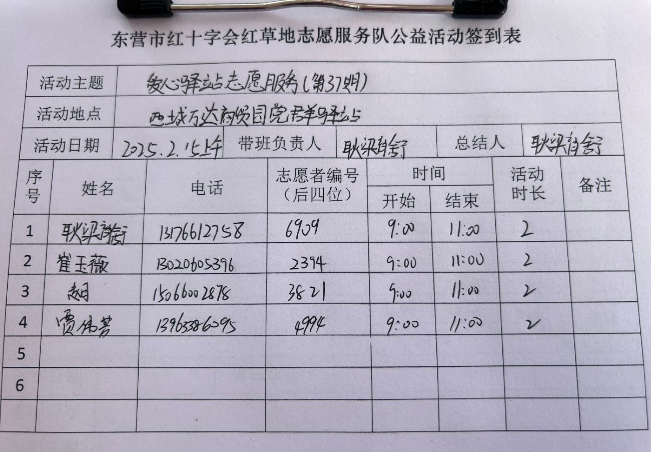 东营市红十字会红草地志愿服务队公益活动签到表
活动主题 爱心驿站志愿服务(第37期)
活动地点 西城万达商贸园党群驿站
活动日期 2025.2.15上午 带班负责人 耿梁 总结人 耿梁
序号 姓名 电话 志愿者编号（后四位） 时间 开始 结束 活动时长 备注
1 耿梁 13176612758 6909 9:00 11:00 2
2 崔玉薇 13020605396 2394 9:00 11:00 2
3 15066002878 3821 9:00 11:00 2
4 贾伟芳 13963386095 4994 9:00 11:00 2
5
6